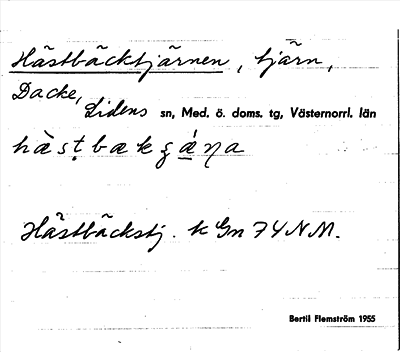 Hästbäcktjärnen, tjärn,
Dacke,
Lidens sn, Med. ö. doms. tg, Västernorrl. län
Hästbäckstj. k Gn 74 NM.
Bertil Flemström 1955